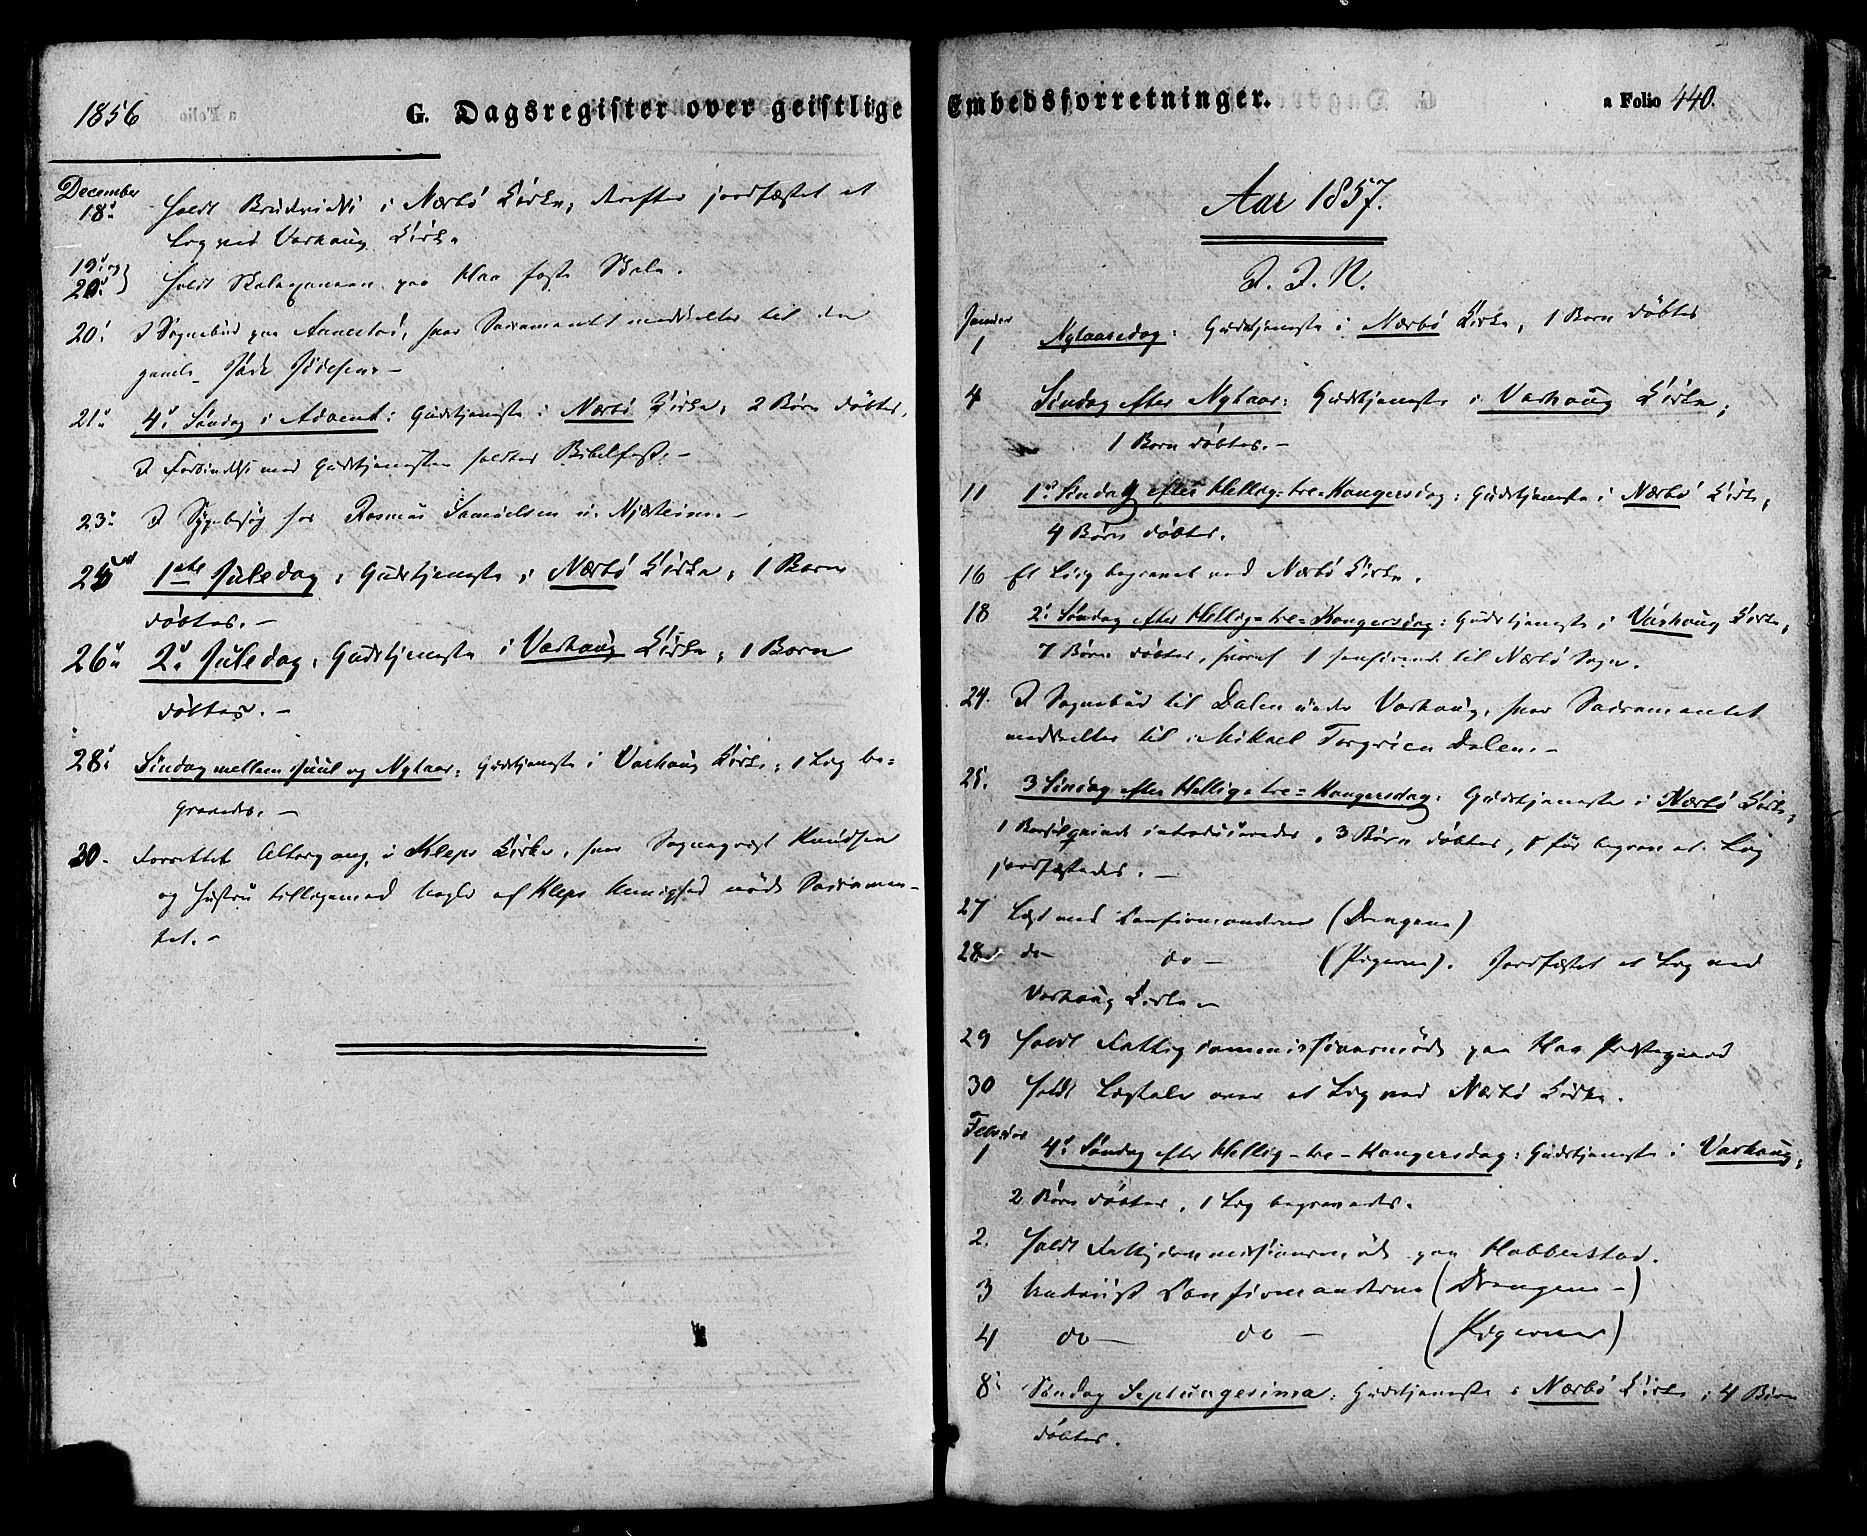 1856
G. Dagsregister over geistlige
December
18. holdt Brudevielse i Nærbø Kirke, derefter jordfæstet et
Lig ved Varhoug Kirke
19. og
20. holdt Skoleexamen paa Haa faste Skole.
20. I Sognebud paa Aanestad, hvor Sacramentet meddeltes til den
gamle
21. 4. Søndag i Advent: Gudstjeneste i Nærbø Kirke, 2 Børn døbtes.
I Forbindelse med Gudstjenesten holdtes Bibelfest. –
23. I Sygebesøg hos Rasmus Samuelsen Njærheim. –
25 1ste Juledag, Gudstjeneste i Nærbø Kirke, 1 Barn
døbtes. –
26. 2. Juledag, Gudstjeneste i Varhoug Kirke, 1 Barn
døbtes. –
28. Søndag mellem Juul og Nytaar: Gudstjeneste i Varhoug Kirke, 1 Lig be-
gravedes. –
30. Forrettet Altergang i Kleps Kirke, hvor Sogneprest Knudsen
og Hustru tilligemed Nogle af Kleps Menighed nøde Sacramen-
tet. –
Embedsforretninger.
a Folio 440.
Aar 1857.
I. J. N.
Januar
1 Nytaarsdag: Gudstjeneste i Nærbø Kirke, 1 Barn døbtes
4 Søndag efter Nytaar: Gudstjeneste i Varhoug Kirke,
1 Barn døbtes. –
11 1. Søndag efter Hellig-tre-Kongersdag: Gudstjeneste i Nærbø Kirke,
4 Børn døbtes.
16 Et Liig begravet ved Nærbø Kirke.
18 2. Søndag efter Hellig-tre-Kongersdag: Gudstjeneste i Varhoug Kirke,
7 Børn døbtes, hvoraf 1 henhørende til Nærbø Sogn.
24. I Sognebud til Dalen under Varhoug, hvor Sacramentet
meddeltes til Mikael Torgrsen Dalen. –
25. 3 Søndag efter Hellig-tre-Kongersdag: Gudstjeneste i Nærbø Kirke,
1 Barselqvinde introduceredes, 3 Børn døbtes, før begravet Lig
jordfæstedes. –
27 Læst med Confirmanderne (Drengene)
28 do – do – (Pigerne). Jordfæstet et Lig ved
Varhoug Kirke –
29 holdt Fattigcommissionsmøde paa Haa Prestegaard
30 holdt Ligtale over et Lig ved Nærbø Kirke.
Februar
1 4. Søndag efter Hellig-tre-Kongersdag: Gudstjeneste i Varhoug,
2 Børn døbtes, 1 Lig begravedes.
2. holdt Fattigcommissionsmøde paa Hobberstad.
3 Underviist Confirmanderne (Drengene –)
4 do – do – (Pigerne)
8. Søndag Septuagesima: Gudstjeneste i Nærbø Kirke, 4 Børn
døbtes.